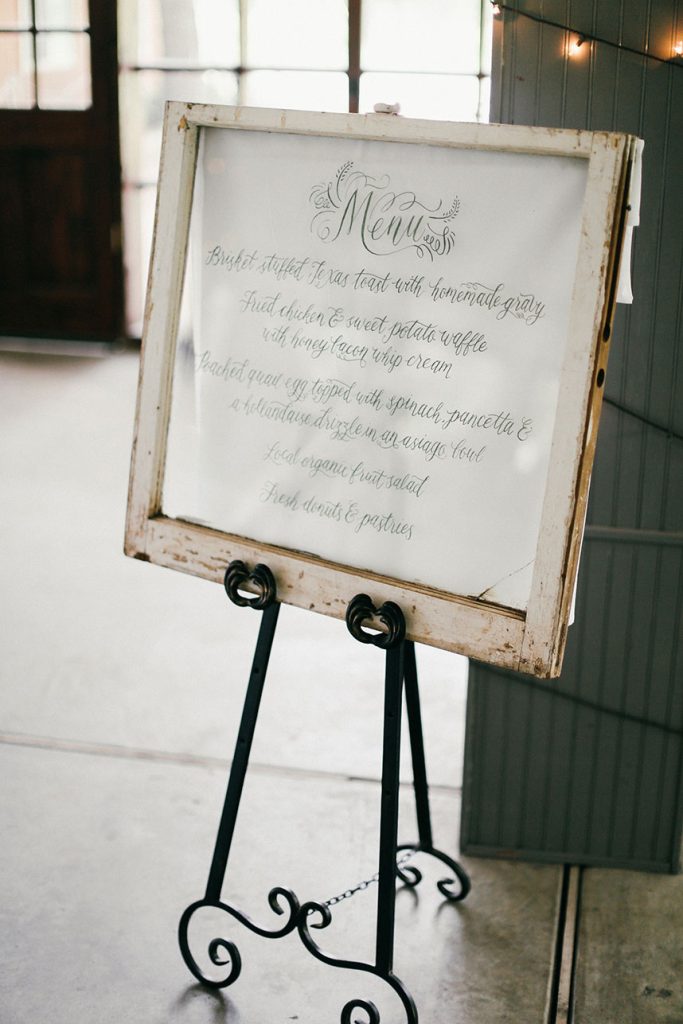 Menu
Brisket stuffed Texas toast with homemade gravy
Fried chicken & sweet potato waffle
with honey bacon whip cream
Poached quail egg topped with spinach, pancetta &
a hollandaise drizzle in an asiago bowl
Local organic fruit salad
Fresh donuts & pastries